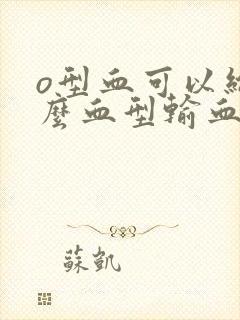 o型血可以給
麼血型輸血
蘇凱